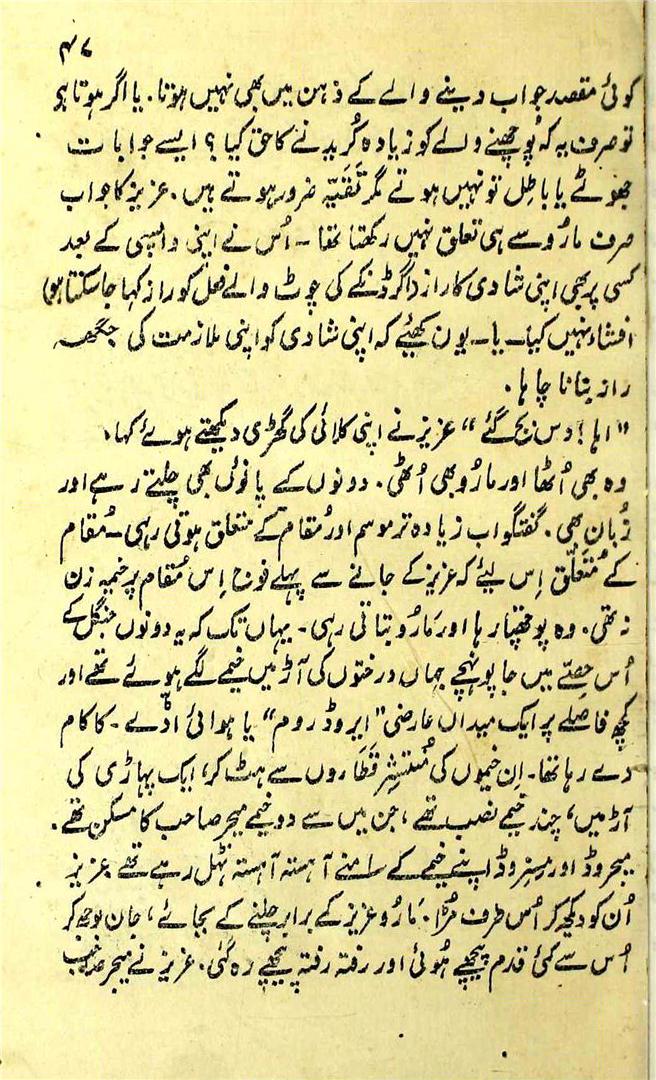 ۴۷
کوئی مقصد جواب دینے والے کے ذہن میں بھی نہیں ہوتا. یا اگر ہوتا ہے
تو صرف یہ کہ پُوچھنے والے کو زیادہ کُریدنے کا حق کیا؟ ایسے جوابات
جھوٹے یا باطِل تو نہیں ہوتے مگر تَقیّہ ضرور ہوتے ہیں. عزیز کا جواب
صرف مارُو سے ہی تعلق نہیں رکھتا تھا - اُس نے اپنی واپسی کے بعد
کسی پر بھی اپنی شادی کا راز (اگر ڈنکے کی چوٹ والے فعل کو راز کہا جا سکتا ہو)
افشاء نہیں کیا - یا - یوں کہیئے کہ اپنی شادی کو اپنی ملازمت کی جگہ
راز بنانا چاہا.
"اہا! دس بج گئے" عزیز نے اپنی کلائی کی گھڑی دیکھتے ہوئے کہا.
وہ بھی اُٹھا اور مارُو بھی اُٹھی. دونوں کے پانوئں بھی چلتے رہے اور
زُبان بھی. گفتگو اب زیادہ تر موسم اور مُقام کے متعلق ہوتی رہی - مُقام
کے مُتعلّق اِس لیئے کہ عزیز کے جانے سے پہلے فوج اِس مُقام پر خیمہ زن
نہ تھی. وہ پوچھتا رہا اور مَارُو بتاتی رہی - یہاں تک کہ یہ دونوں جنگل کے
اُس حِصّے میں جا پونہچے جہاں درختوں کی آڑ میں خیمے لگے ہوئے تھے اور
کچھ فاصلے پر ایک میدان عارضی "ایروڈروم" یا ہوائی اڈّے - کا کام
دے رہا تھا - اِن خیموں کی مُنتشِر قَطَاروں سے ہٹ کر، ایک پہاڑی کی
آڑ میں، چند خیمے نصب تھے، جن میں سے دو خیمے میجر صاحب کا مسکن تھے.
میجر وڈ اور مِسز وڈ اپنے خیمے کے سامنے آہستہ آہستہ ٹہل رہے تھے. عزیز
اُن کو دیکھ کر اُس طرف مُڑا. مَارُو عزیز کے برابر چلنے کے بجائے، جان بوجھ کر
اُس سے کئی قدم پیچھے ہُوئی اور رفتہ رفتہ پیچھے رہ گئی. عزیز نے میجر صاحب